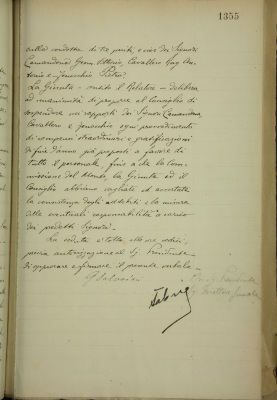 1355
sulla condotta di tre periti, e cioè dei Signori
Comandoni Geom. Vittorio, Cavallero Luigi
e Ienecchio Pietro.
La Giunta – udito il Relatore – delibera
ad unanimità di proporre al Consiglio di
sospendere nei rapporti dei Signori Comandoni,
Cavallero e Ienecchio ogni provvedimento
di compensi straordinari e gratificazioni
di fine d'anno già proposti a favore di
tutto il personale, fino a che la Com-
missione del Monte, la Giunta ed il
Consiglio abbiano vagliati ed accertata
la consistenza degli addebiti e la misura
delle eventuali responsabilità a carico
dei predetti Signori.
La seduta è tolta alle ore sedici,
previa autorizzazione al Sig. Presidente
di approvare e firmare il presente verbale.
G Salvadori